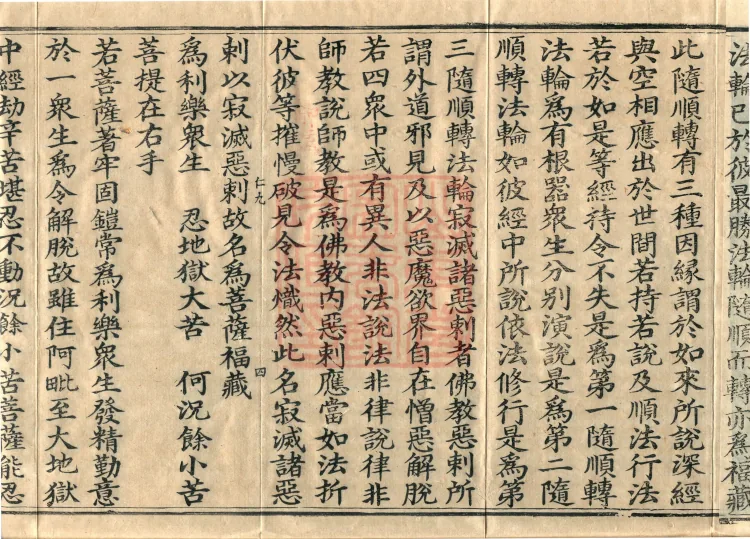 法輪已於彼最勝法輪隨順而轉亦爲福藏
此隨順轉有三種因緣謂於如來所說深經
與空相應出於世間若持若說及順法行法
若於如是等經持令不失是爲第一隨順轉
法輪爲有根器衆生分別演說是爲第二隨
順轉法輪如彼經中所說依法修行是爲第
三隨順轉法輪寂滅諸惡刺者佛教惡刺所
謂外道邪見及以惡魔欲界自在憎惡解脫
若四衆中或有異人非法說法非律說律非
師教說師教是爲佛教內惡刺應當如法折
伏彼等摧慢破見令法熾然此名寂滅諸惡
仁九 四
刺以寂滅惡刺故名爲菩薩福藏
爲利樂衆生 忍地獄大苦 何況餘小苦
菩提在右手
若菩薩著牢固鎧常爲利樂衆生發精勤意
於一衆生爲令解脫故雖住阿毗至大地獄
中經劫辛苦堪忍不動況餘小苦菩薩能忍